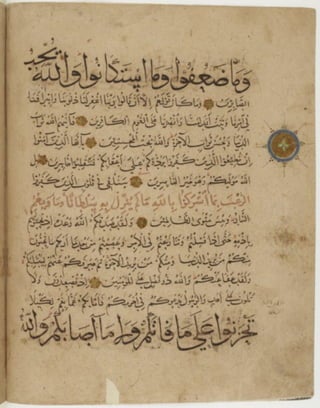 وما ضعفوا وما استكانوا والله يحب
الصابرين وما كان قولهم إلا أن قالوا ربنا اغفر لنا ذنوبنا وإسرافنا
في أمرنا وثبت أقدامنا وانصرنا على القوم الكافرين فآتاهم الله ثواب
الدنيا وحسن ثواب الآخرة والله يحب المحسنين يا أيها الذين آمنوا
إن تطيعوا الذين كفروا يردوكم على أعقابكم فتنقلبوا خاسرين بل
الله موليكم وهو خير الناصرين سنلقي في قلوب الذين كفروا
الرعب بما أشركوا بالله ما لم ينزل به سلطانا ومأويهم
النار وبئس مثوى الظالمين ولقد صدقكم الله وعده إذ تحسونهم
بإذنه حتى إذا فشلتم وتنازعتم في الأمر وعصيتم من بعد ما أراكم ما تحبون
منكم من يريد الدنيا ومنكم من يريد الآخرة ثم صرفكم عنهم ليبتليكم
ولقد عفا عنكم والله ذو فضل على المؤمنين إذ تصعدون ولا
تلوون على أحد والرسول يدعوكم في أخراكم فأثابكم غما بغم لكيلا
تحزنوا على ما فاتكم ولا ما أصابكم والله